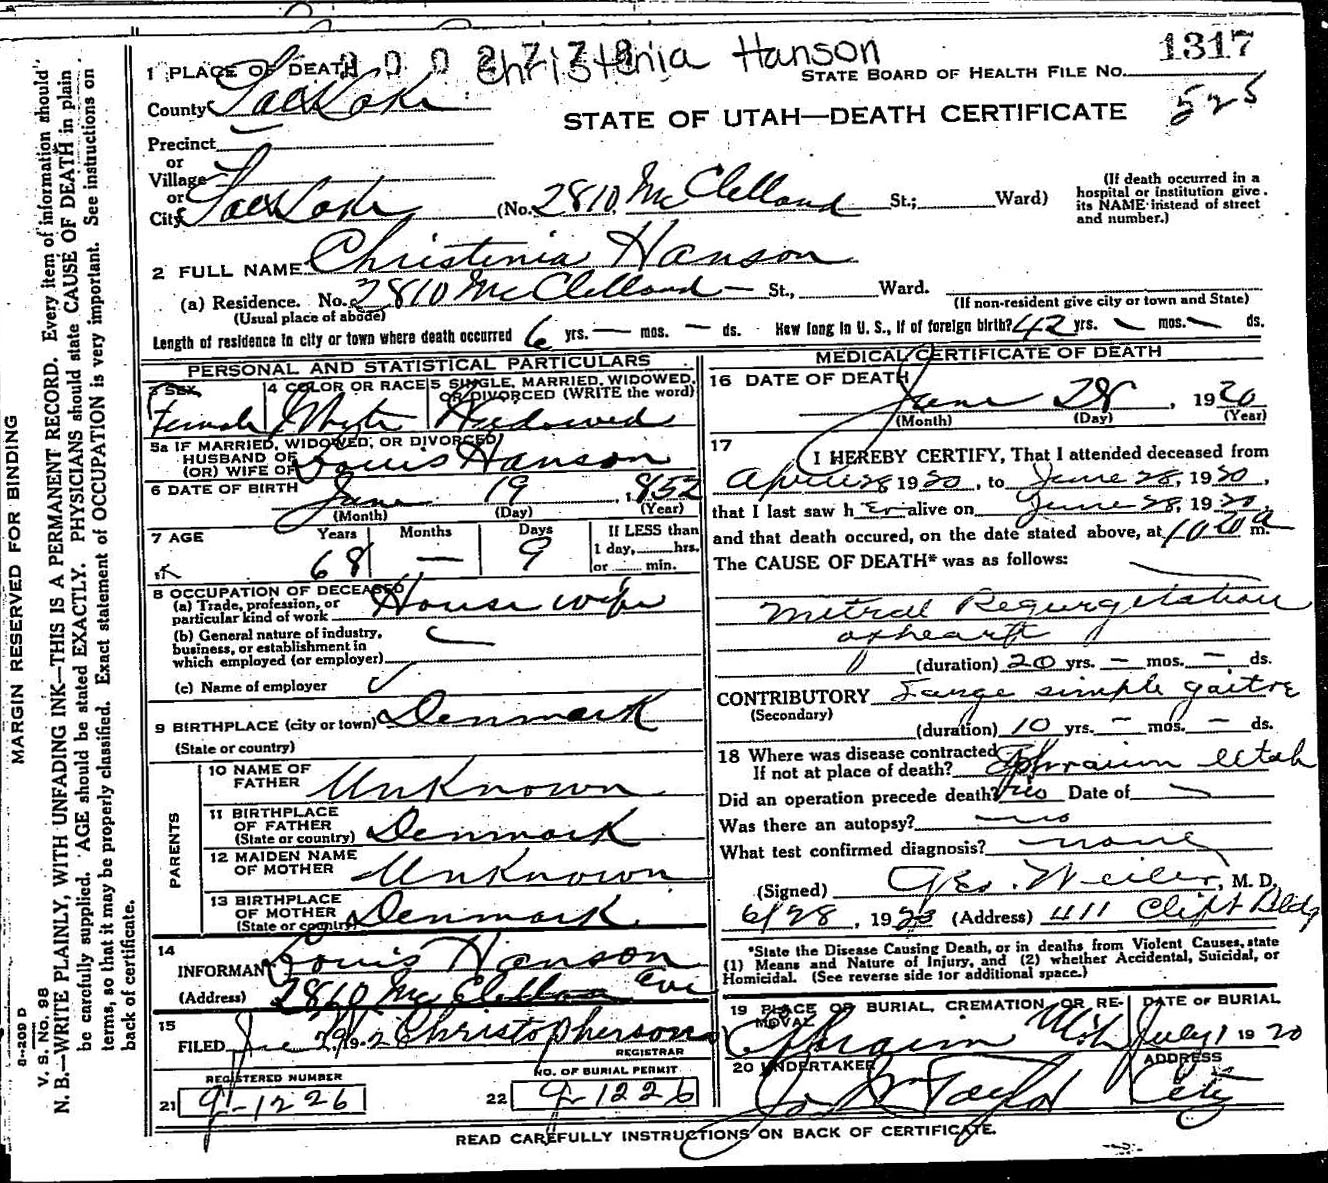 Christenia Hanson
1317
1 PLACE OF DEATH
STATE BOARD OF HEALTH FILE NO.
County Salt Lake
525
STATE OF UTAH—DEATH CERTIFICATE
Precinct
or
Village
or
City Salt Lake (No. 2810 McClelland St.; Ward)
(If death occurred in a hospital or institution give its NAME instead of street and number.)
2 FULL NAME Christenia Hanson
(a) Residence. No. 2810 McClelland — St., Ward.
(Usual place of abode)
(If non-resident give city or town and State)
Length of residence in city or town where death occurred 6 yrs. — mos. — ds. How long in U. S., if of foreign birth? 42 yrs. — mos. — ds.
PERSONAL AND STATISTICAL PARTICULARS
3 SEX
Female
4 COLOR OR RACE
White
5 SINGLE, MARRIED, WIDOWED, OR DIVORCED (WRITE the word)
Widowed
5a IF MARRIED, WIDOWED, OR DIVORCED
HUSBAND OF
(OR) WIFE OF Louis Hanson
6 DATE OF BIRTH June 19, 1852
(Month) (Day) (Year)
7 AGE Years Months Days
68 — 9
If LESS than
1 day, hrs.
or min.
8 OCCUPATION OF DECEASED
(a) Trade, profession, or
particular kind of work House wife
(b) General nature of industry,
business, or establishment in
which employed (or employer)
(c) Name of employer
9 BIRTHPLACE (city or town) Denmark
(State or country)
PARENTS
10 NAME OF
FATHER Unknown
11 BIRTHPLACE
OF FATHER
(State or country) Denmark
12 MAIDEN NAME
OF MOTHER Unknown
13 BIRTHPLACE
OF MOTHER
(State or country) Denmark
14
INFORMANT Louis Hanson
(Address) 2810 McClelland Ave
15
FILED 29 192 Christopherson
REGISTRAR
REGISTERED NUMBER
21 9-1226
NO. OF BURIAL PERMIT
22 9-1226
MEDICAL CERTIFICATE OF DEATH
16 DATE OF DEATH
June 28, 1920
(Month) (Day) (Year)
17
I HEREBY CERTIFY, That I attended deceased from
April 28 1920, to June 28, 1920,
that I last saw her alive on June 28, 1920,
and that death occured, on the date stated above, at 10 20 a m.
The CAUSE OF DEATH* was as follows:
Mitral Regurgitation
of heart
(duration) 20 yrs. — mos. — ds.
CONTRIBUTORY Large simple goitre
(Secondary)
(duration) 10 yrs. — mos. — ds.
18 Where was disease contracted
If not at place of death? Ephraim Utah
Did an operation precede death? no Date of
Was there an autopsy? no
What test confirmed diagnosis? none
(Signed) Geo. Weiler, M. D.
6/28, 1920 (Address) 411 Clift Bldg
*State the Disease Causing Death, or in deaths from Violent Causes, state
(1) Means and Nature of Injury, and (2) whether Accidental, Suicidal, or
Homicidal. (See reverse side for additional space.)
19 PLACE OF BURIAL, CREMATION, OR REMOVAL
Ephraim Utah
DATE OF BURIAL
July 1 1920
20 UNDERTAKER
Taylor
ADDRESS
City
READ CAREFULLY INSTRUCTIONS ON BACK OF CERTIFICATE.
MARGIN RESERVED FOR BINDING
8-209 D
V. S. NO. 98
N. B.—WRITE PLAINLY, WITH UNFADING INK—THIS IS A PERMANENT RECORD. Every item of information should
be carefully supplied. AGE should be stated EXACTLY. PHYSICIANS should state CAUSE OF DEATH in plain
terms, so that it may be properly classified. Exact statement of OCCUPATION is very important. See instructions on
back of certificate.